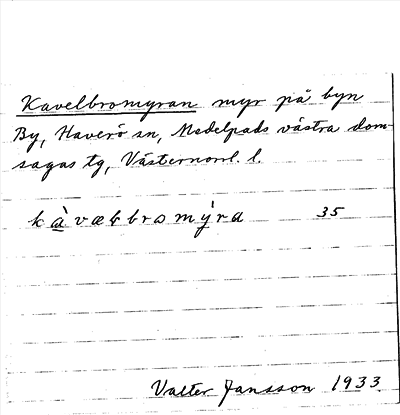 Kavelbromyran myr på byn
By, Haverö sn, Medelpads västra dom-
sagas tg, Västernorrl. l.
kàvælbromýra 35
Valter Jansson 1933.